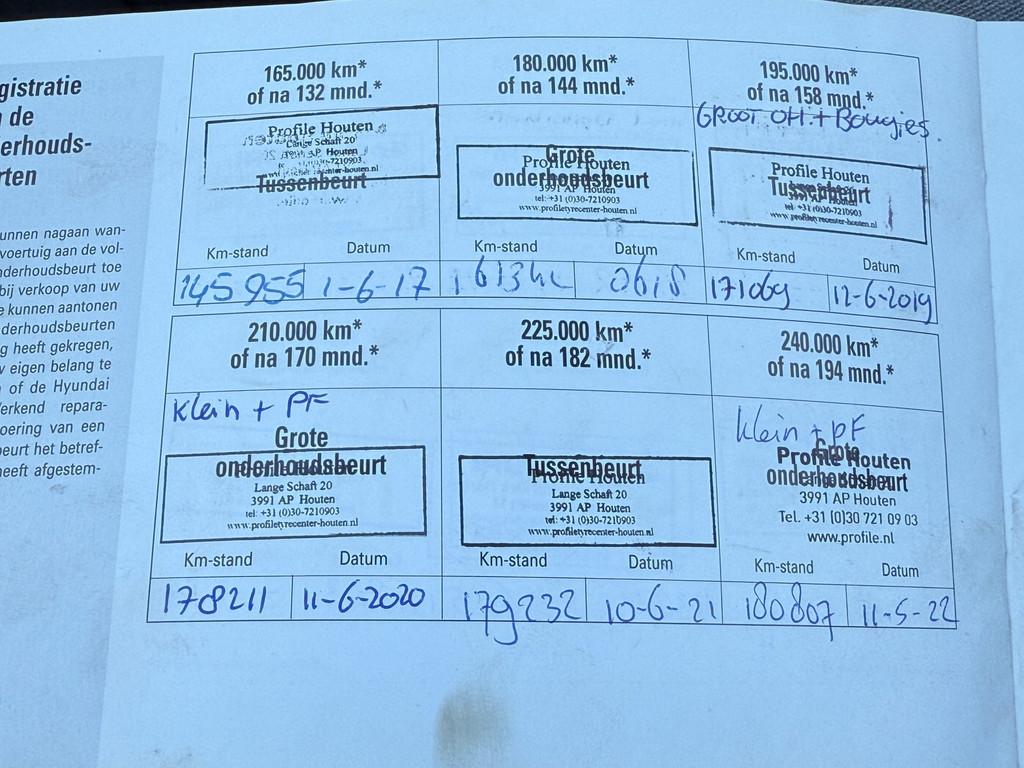 gistratie
de
erhouds-
rten
unnen nagaan wan-
voertuig aan de vol-
nderhoudsbeurt toe
bij verkoop van uw
e kunnen aantonen
derhoudsbeurten
g heeft gekregen,
v eigen belang te
of de Hyundai
erkend repara-
oering van een
beurt het betref-
heeft afgestem-
165.000 km*
of na 132 mnd.*
Profile Houten
Lange Schaft 20
AP Houten
-7210903
Tussenbeurt
Km-stand Datum
145955 1-6-17
180.000 km*
of na 144 mnd.*
Grote
Profile Houten
onderhoudsbeurt
3991 AP Houten
tel: +31 (0)30-7210903
www.profiletyrecenter-houten.nl
Km-stand Datum
0618
195.000 km*
of na 158 mnd.*
GROOT OH + Bougies
Profile Houten
Tussenbeurt
3991 AP Houten
tel: +31 (0)30-7210903
www.profiletyrecenter-houten.nl
Km-stand Datum
171069 12-6-2019
210.000 km*
of na 170 mnd.*
Klein + PF
Grote
onderhoudsbeurt
Lange Schaft 20
3991 AP Houten
tel: +31 (0)30-7210903
www.profiletyrecenter-houten.nl
Km-stand Datum
178211 11-6-2020
225.000 km*
of na 182 mnd.*
Tussenbeurt
Profile Houten
Lange Schaft 20
3991 AP Houten
tel: +31 (0)30-7210903
www.profiletyrecenter-houten.nl
Km-stand Datum
179232 10-6-21
240.000 km*
of na 194 mnd.*
Klein + PF
Grote
Profile Houten
onderhoudsbeurt
3991 AP Houten
Tel. +31 (0)30 721 09 03
www.profile.nl
Km-stand Datum
180807 11-5-22